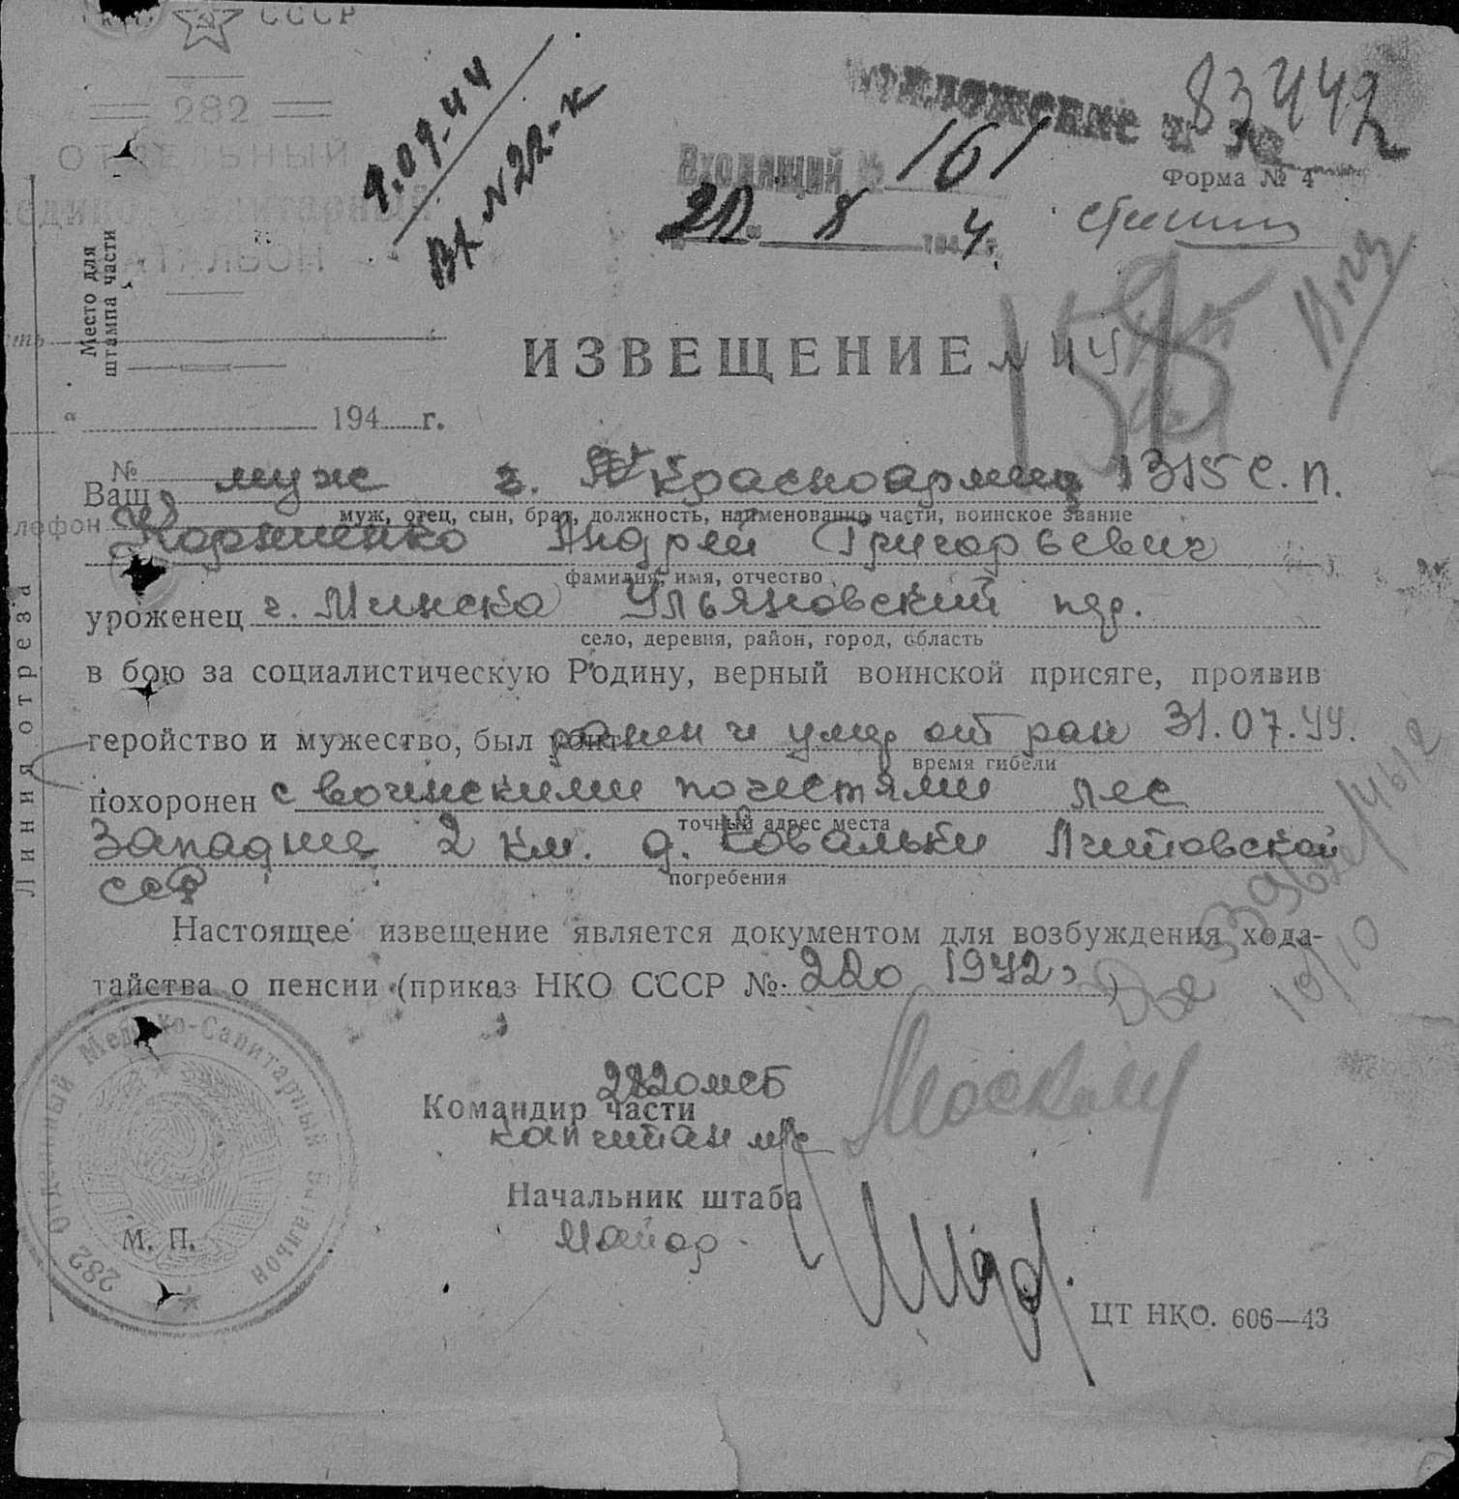 СССР
282
ОТДЕЛЬНЫЙ
Медико-Санитарный
БАТАЛЬОН
9.09-44
Вх N 22-к
83442
Входящий № 161
20 8 194 4 г.
Форма № 4
Место для
штампа части
194 г.
№
ИЗВЕЩЕНИЕ N
Ваш муж г. красноармеец 1315 С.П.
муж, отец, сын, брат, должность, наименование части, воинское звание
Андрей Григорьевич
фамилия, имя, отчество
уроженец г. Минска Ульяновский пер.
село, деревня, район, город, область
в бою за социалистическую Родину, верный воинской присяге, проявив
геройство и мужество, был ранен и умер от ран 31.07.44.
время гибели
похоронен с воинскими почестями лес
точный адрес места
Западнее 2 км. д. Ковальки Литовской
погребения
ССР
Настоящее извещение является документом для возбуждения хода-
тайства о пенсии (приказ НКО СССР № 220 1942 )
10/10
282 омсб
Командир части
капитан м/с
Начальник штаба
Майор
М. П.
282 Отдельный Медико-Санитарный Батальон
ЦТ НКО. 606—43
Линия отреза